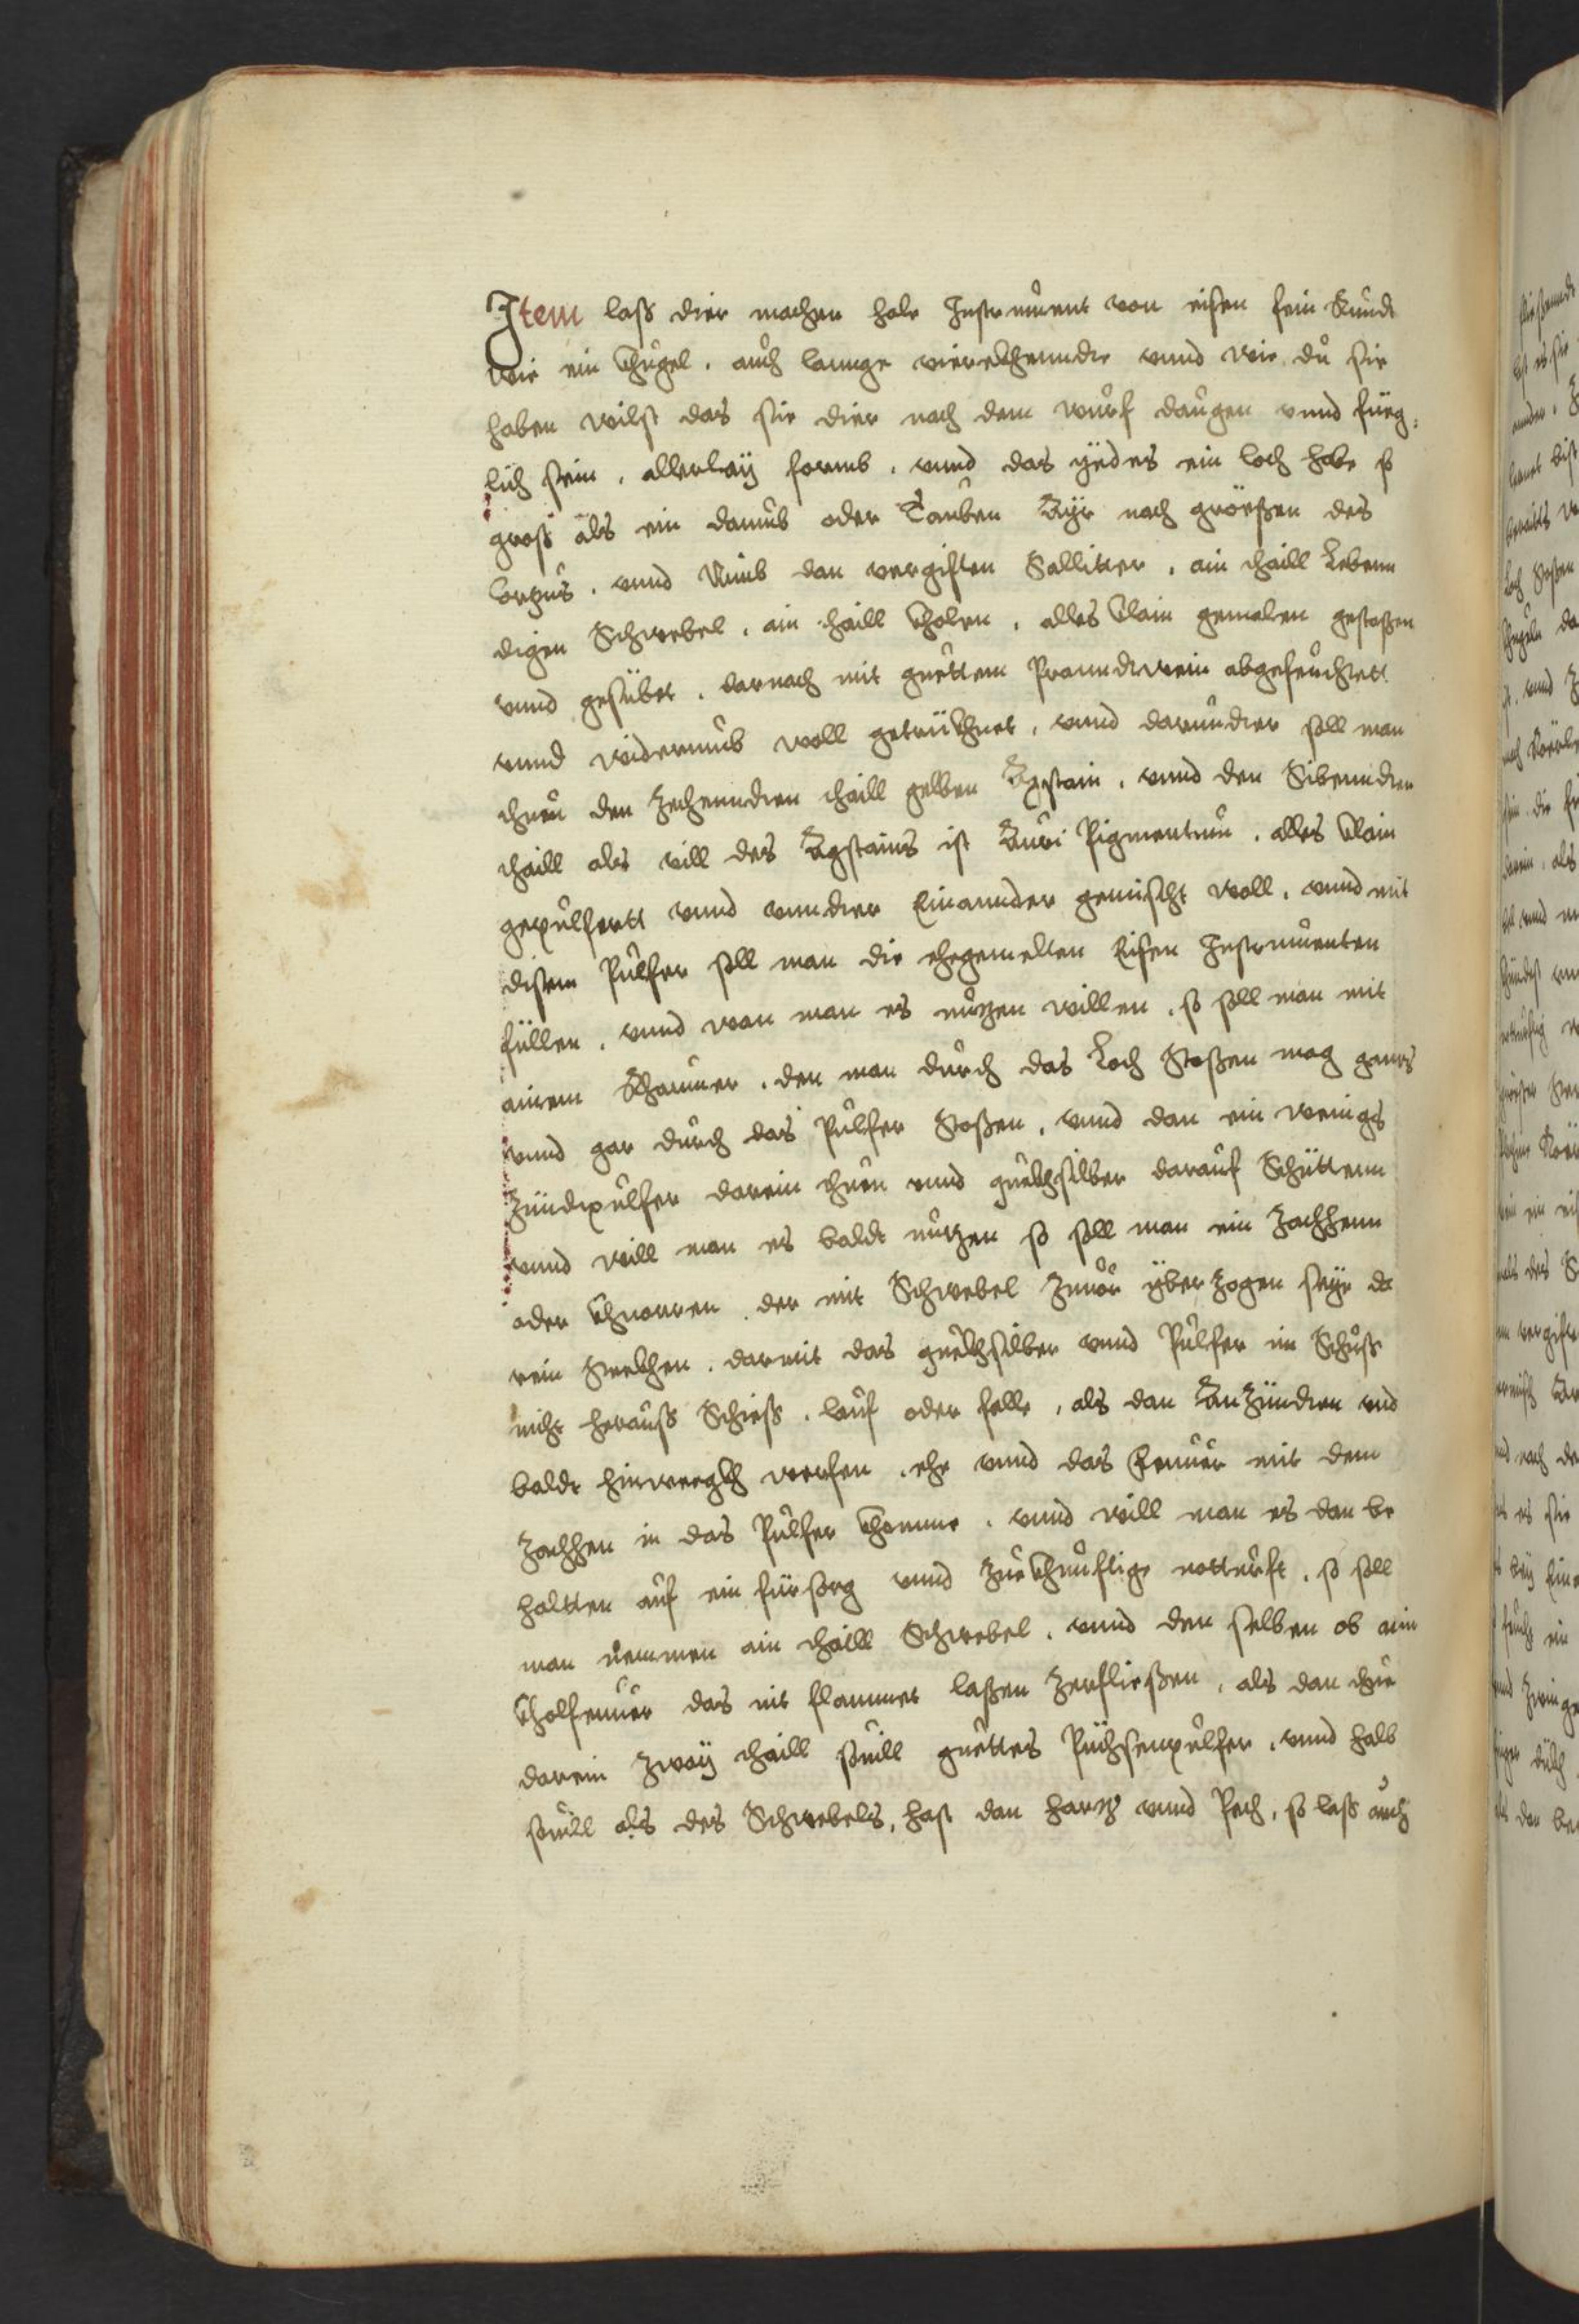 Item lass dier machen hole Instrument von eisen sein Rundt
wie ein Khugel, auch lannge vierekhenndte vnnd wie du sie
haben wilst das sie dier nach dem wurf daugen vnnd füeg,
lich sein, allerlaÿ formb, vnnd das ÿedes ein loch habe so
gross als ein daumb oder Tauben Aÿr nach gröessen des
Corpus, vnnd Nimb dan vergiften Salliter, ain thaill Lebenn
digen Schwebel, ain thaill Kholen, alles Klain gemalen gestossen
vnnd gesübet, darnach mit guettem Pranndtwein abgefeuchtett
vnnd widerumb woll getrükhnet, vnnd darundter soll man
thuen den Zechenndten thaill gelben Agstain, vnnd den Sibenndten
thaill als vill des Agstains ist Auri Pigmentum, alles Klain
gepulfertt vnnd vnndter Einannder gemischt woll, vnnd mit
disem Pulfer soll man die ehegemelten Eisen Instrumenten
füllen, vnnd wan man es nutzen willen, so soll man mit
ainem Rhaumer, den man durch das Loch Stossen mag gannz
vnnd gar durch das Pulfer Stossen, vnnd dan ein wenigs
Zündtpulfer darein thuen vnnd quekhsilber darauf Schüttenn
vnnd will man es baldt nutzen so soll man ein Zachhenn
oder Khnorren der mit Schwebel Zuuor ÿberzogen seÿe da
rein Stekhen, darmit das quekhsilber vnnd Pulfer im Schuss
nicht herauss Schiess, lauf oder falle, als dan Anzündten vnd
baldt hinweegkh werfen, ehe vnnd das Feuuer mit dem
Zachhen in das Pulfer Khomme, vnnd will man es dan be
haltten auf ein fürsorg vnnd Zuekhunftige notturft, so soll
man nemmen ain thaill Schwebel, vnnd den selben ob aim
Kholfeuuer das nit flammet lassen Zerfliessen, als dan thue
darein Zwaÿ thaill souill guettes Püchsenpulfer, vnnd halb
souill als des Schwebels, hast dan harz vnnd Pech, so lass auch